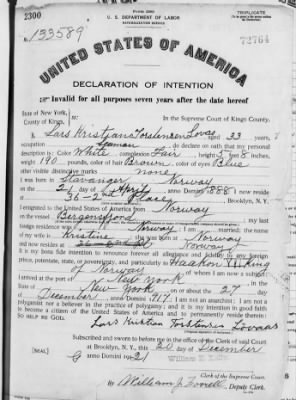 Form 2203
2300
U. S. DEPARTMENT OF LABOR
NATURALIZATION SERVICE
TRIPLICATE
No. 133589
72764
UNITED STATES OF AMERICA
DECLARATION OF INTENTION
Invalid for all purposes seven years after the date hereof
State of New York,
County of Kings, ss:
In the Supreme Court of Kings County.
I, Lars Kristian Torstensen Lovaas, aged 33 years,
occupation Seaman, do declare on oath that my personal
description is: Color White, complexion Fair, height 5 feet 8 inches,
weight 190 pounds, color of hair Brown, color of eyes Blue
other visible distinctive marks none
I was born in Stavanger Norway
on the 21 day of April, anno Domini 1888; I now reside
at 36-2 Place, Brooklyn, N. Y.
I emigrated to the United States of America from Norway
on the vessel Bergensfjord; my last
foreign residence was Norway; I am married; the name
of my wife is Kristine; she was born at Norway
and now resides at Norway
It is my bona fide intention to renounce forever all allegiance and fidelity to any foreign
prince, potentate, state, or sovereignty, and particularly to Haakon VII King
of Norway, of whom I am now a subject;
I arrived at the port of New York, in the
State of New York, on or about the 27 day
of December, anno Domini 1917; I am not an anarchist; I am not a
polygamist nor a believer in the practice of polygamy; and it is my intention in good faith
to become a citizen of the United States of America and to permanently reside therein:
SO HELP ME GOD.
Lars Kristian Torstensen Lovaas
Subscribed and sworn to before me in the office of the Clerk of said Court
at Brooklyn, N. Y., this 20 day of December
[SEAL]
anno Domini 1921
Clerk of the Supreme Court.
By William J. Farrell, Deputy Clerk.